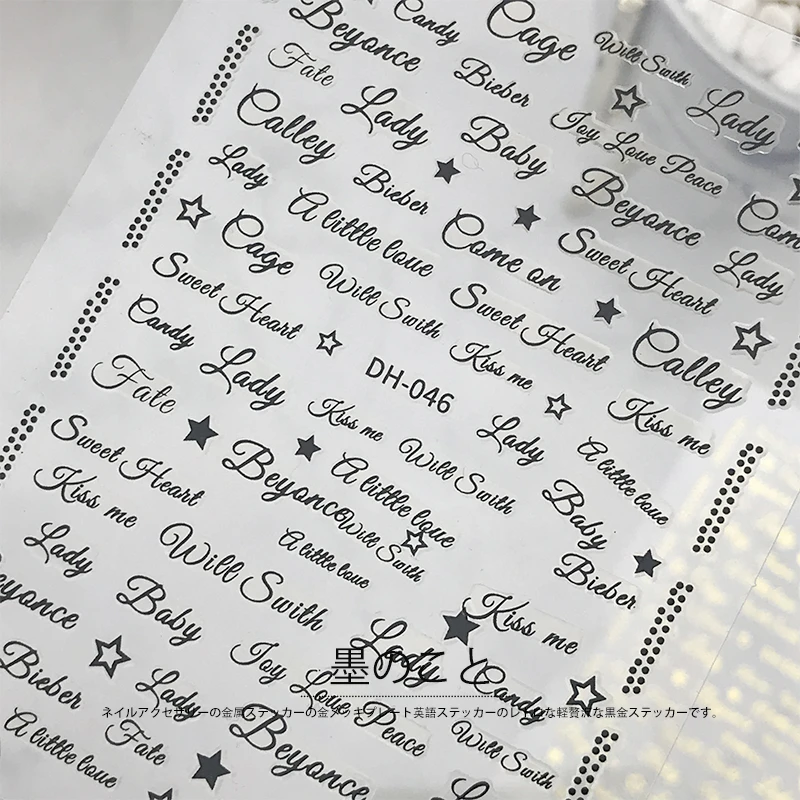 Beyonce
Candy
Cage
Will Swith
Fate
Bieber
Lady
Calley
Lady
Baby
Ioy Loue Peace
Lady
Bieber
Beyonce
Com
A little loue
Come on
Sweet Heart
Lady
Cage
Will Swith
Sweet Heart
Sweet Heart
Kiss me
Calley
Candy
Lady
DH-046
Kiss me
Fate
Kiss me
Will Swith
Lady
A little loue
Sweet Heart
Beyonce
A little loue
Baby
Kiss me
Will Swith
Bieber
A little loue
Lady
Will Swith
Kiss me
eyonce
Baby
Lady
Candy
Bieber
Lady
Ioy Loue Peace
Will Swith
A little loue
Fate
Beyonce
墨のこと
ネイルアクセサリーの金属ステッカーの金メッキプレート英語ステッカーのレトロな軽贅沢な黒金ステッカーです。